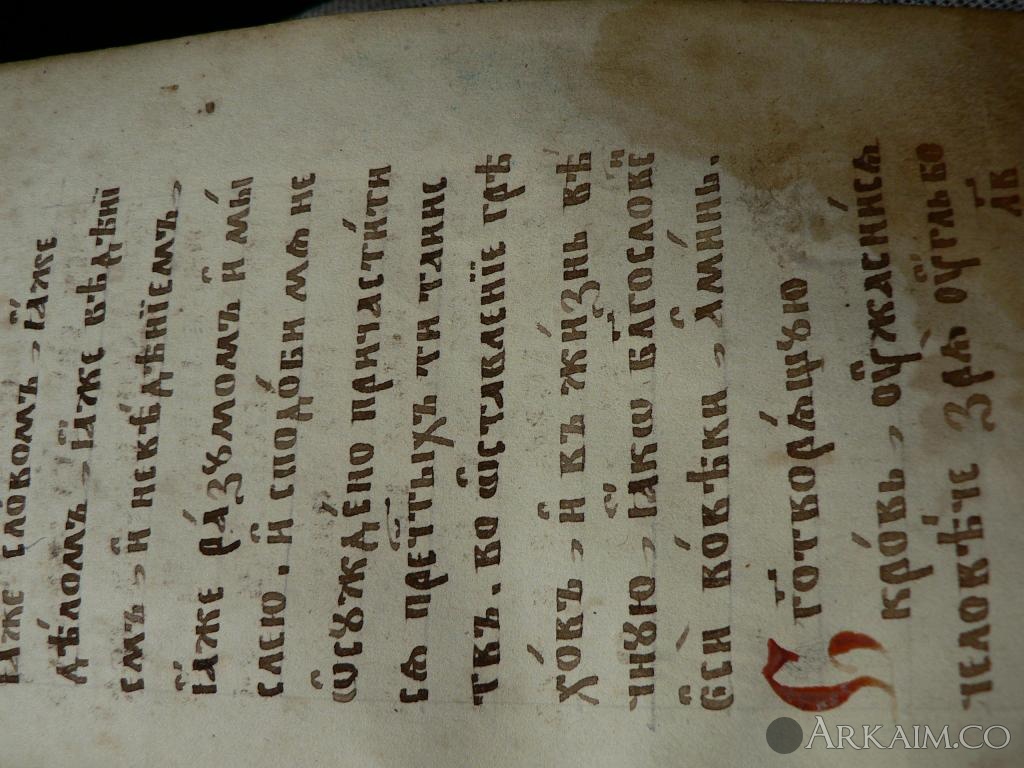 ꙗ҆́же сло́вомъ, ꙗ҆́же
дѣ́ломъ, ꙗ҆́же вѣ́дѣнї
емъ, и҆ невѣ́дѣнїемъ,
ꙗ҆́же ра́зꙋмомъ и҆ мы́
слею. и҆ сподо́би мѧ не
ѡ҆сꙋжде́но причасти́ти
сѧ пречⷭ҇тыхъ ти таинс
твъ. во ѡ҆ставленїе грѣ
хо́въ, и҆ въ жи́знь вѣ́
чнꙋю, ꙗ҆кѡ бл҃гослове
е҆сѝ во́вѣки, а҆ми́нь.
Б г҃отворѧ́щꙋю
кро́вь, оу҆жасни́сѧ
человѣ́че зрѧ̀ оу҆́гль бо
ARKAIM.CO